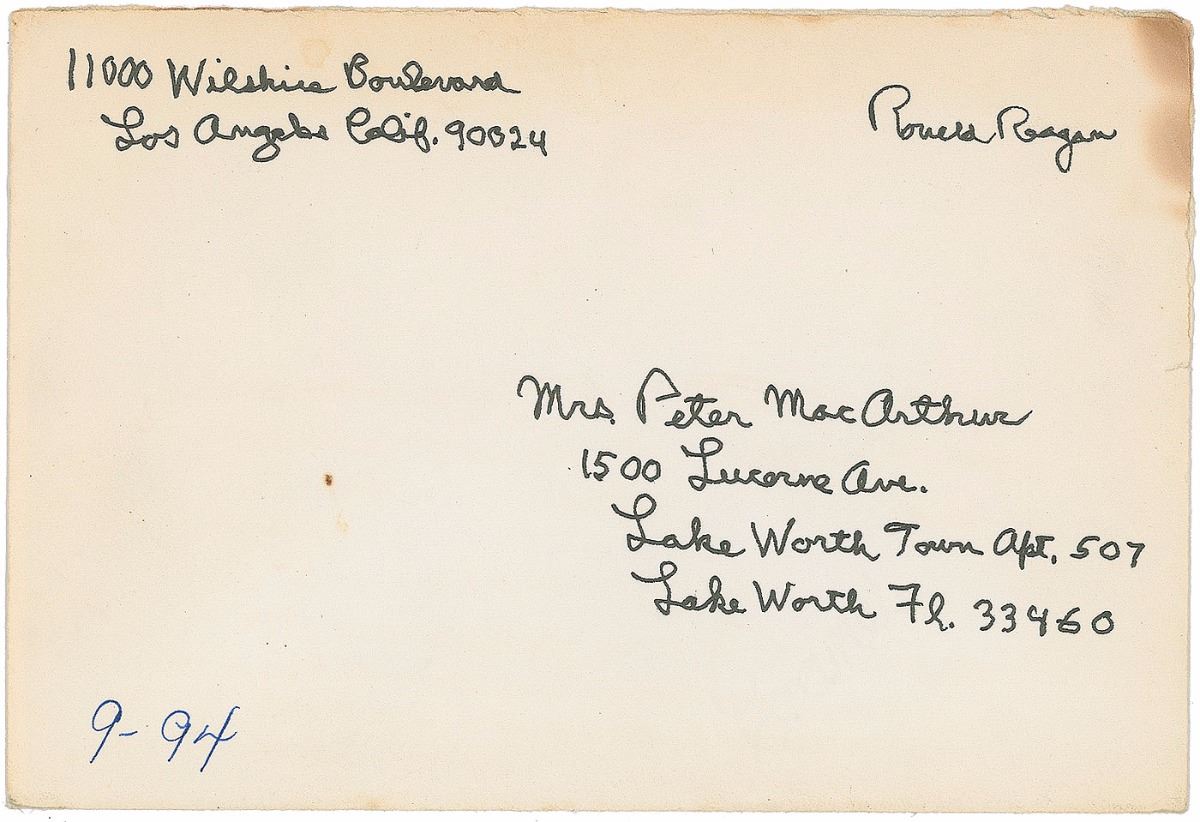 11000 Wilshire Boulevard
Los Angeles Calif. 90024
Ronald Reagan
Mrs. Peter MacArthur
1500 Lucerne Ave.
Lake Worth Town Apt. 507
Lake Worth Fl. 33460
9-94